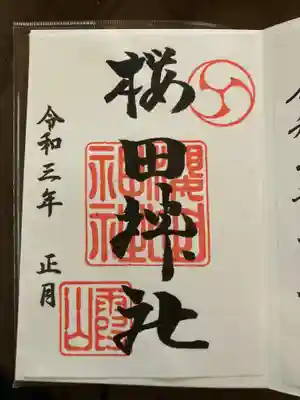 桜田神社
令和三年 正月
櫻田
神社
霞山